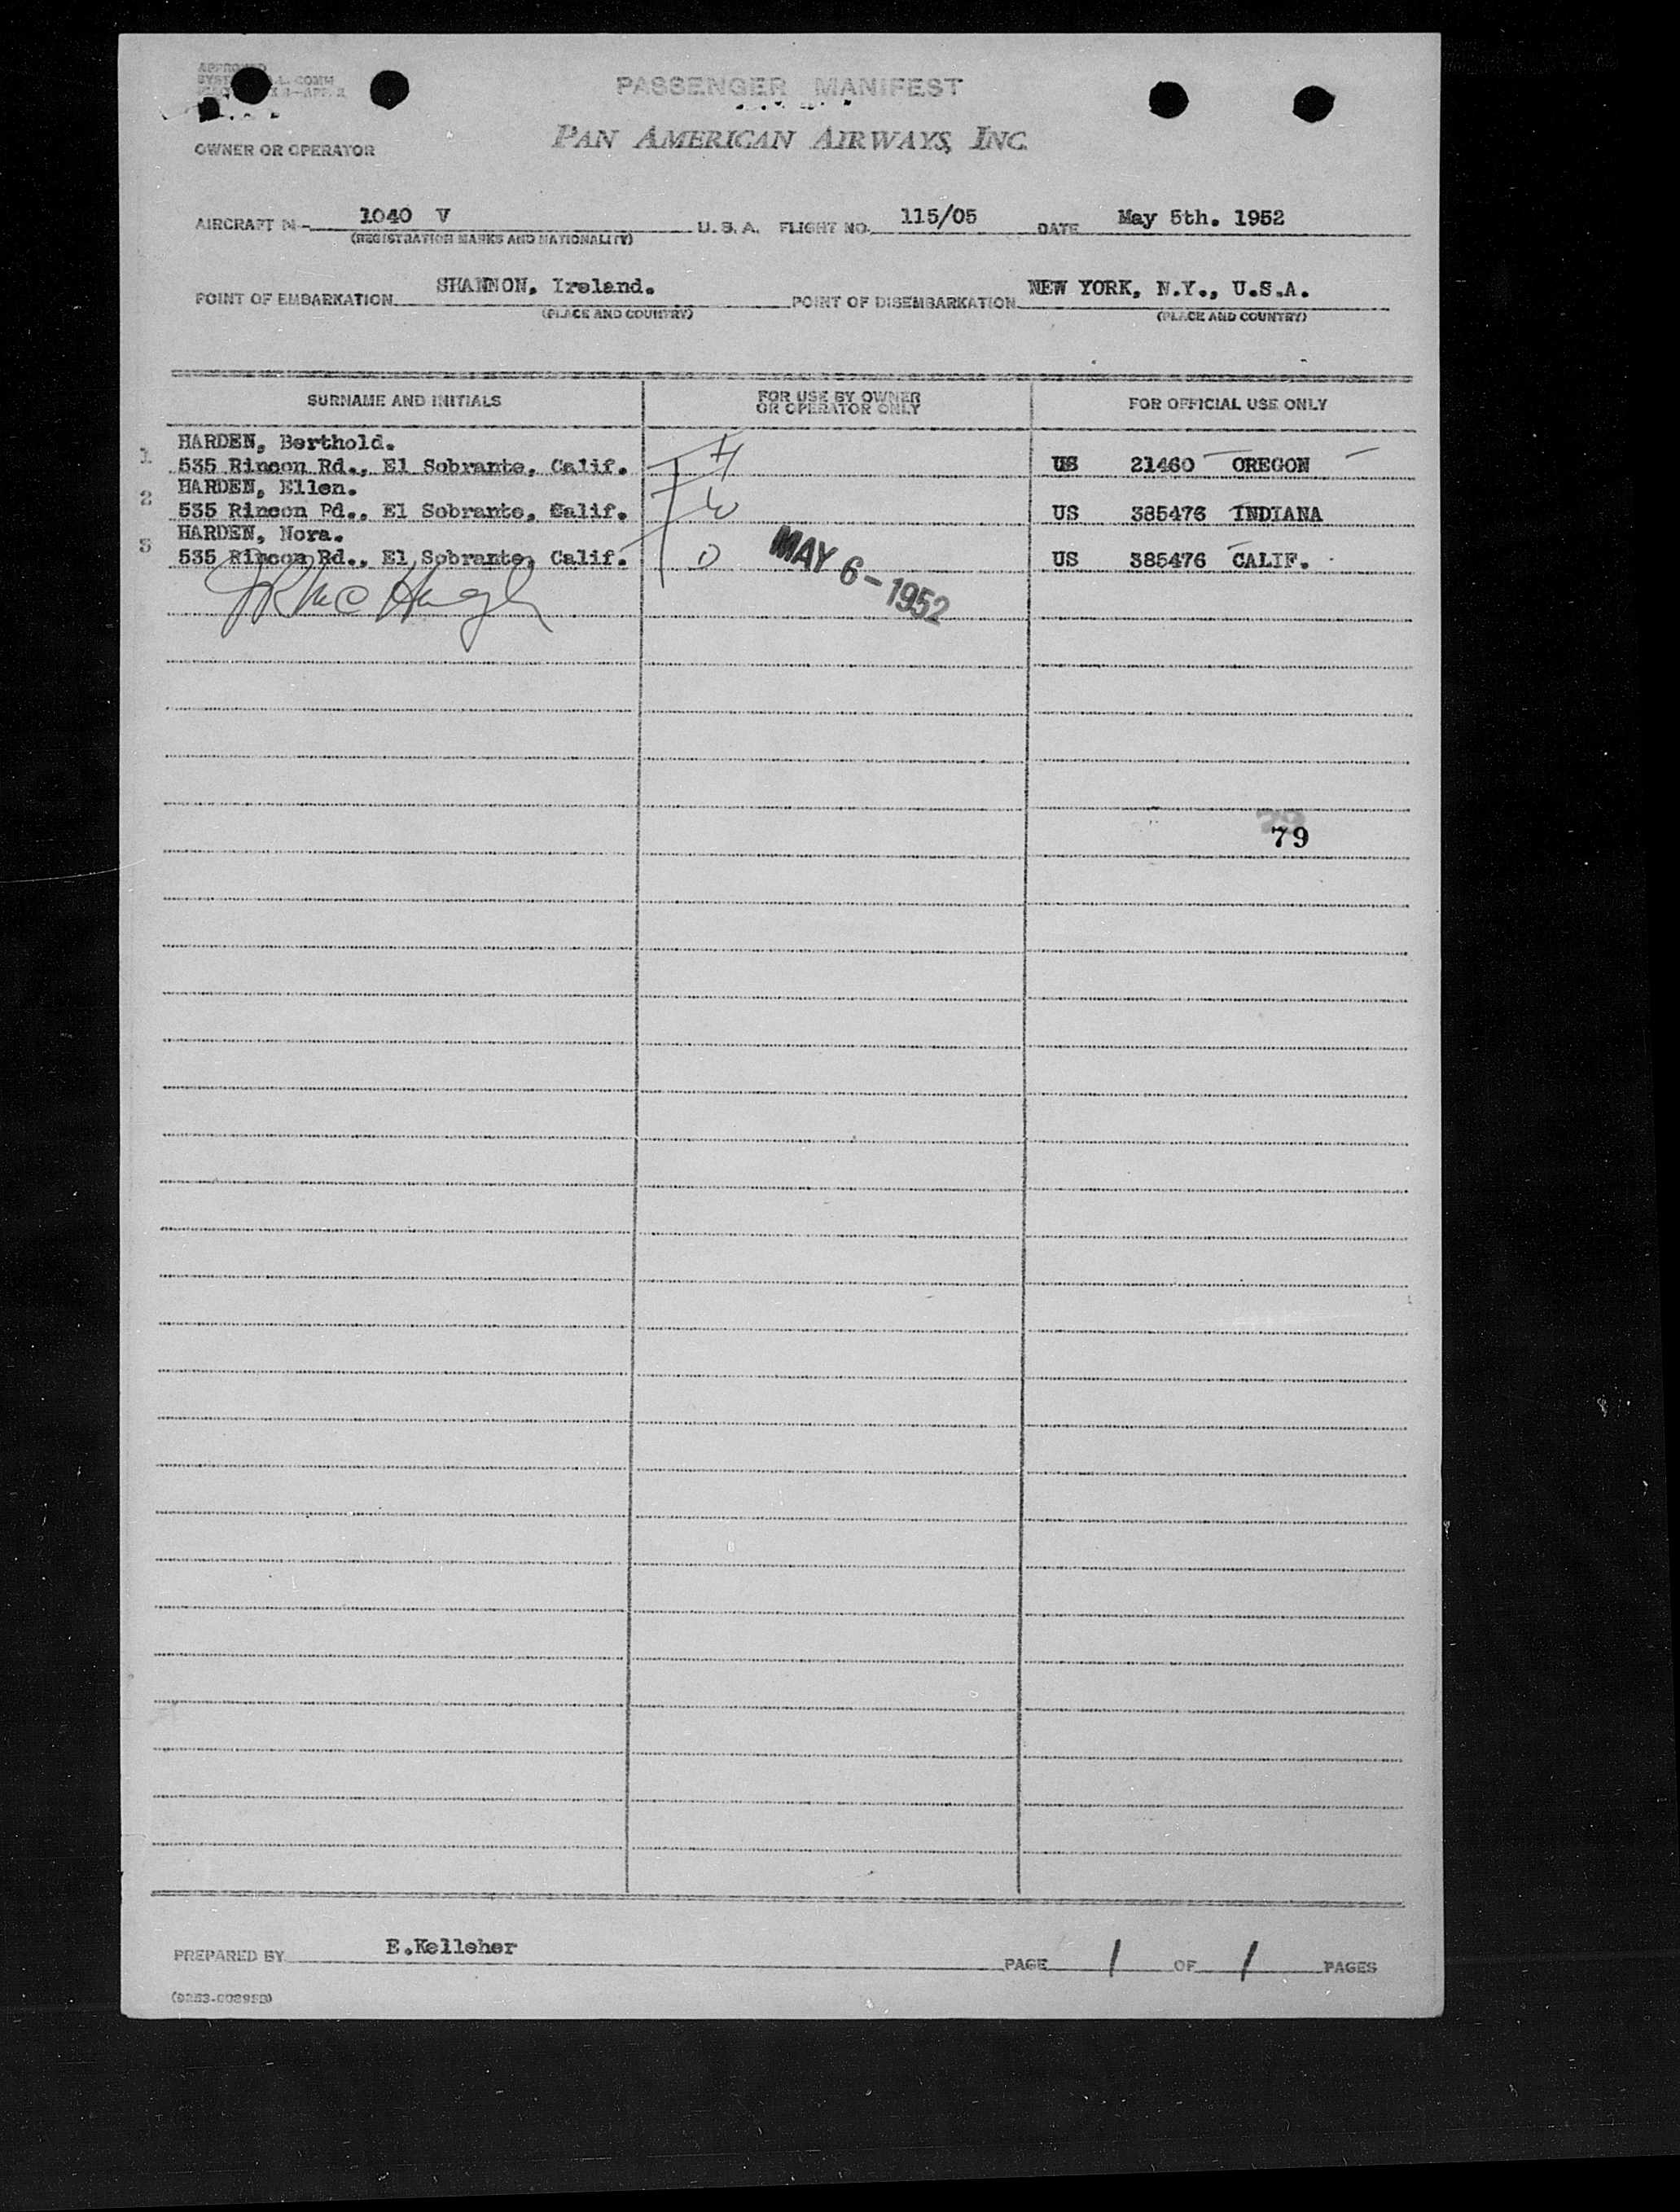 PASSENGER MANIFEST
PAN AMERICAN AIRWAYS, INC.
OWNER OR OPERATOR
AIRCRAFT N- 1040 V U.S.A. FLIGHT NO. 115/05 DATE May 5th. 1952
(REGISTRATION MARKS AND NATIONALITY)
POINT OF EMBARKATION SHANNON, Ireland. POINT OF DISEMBARKATION NEW YORK, N.Y., U.S.A.
(PLACE AND COUNTRY) (PLACE AND COUNTRY)
SURNAME AND INITIALS FOR USE BY OWNER OR OPERATOR ONLY FOR OFFICIAL USE ONLY
HARDEN, Berthold. H
1 535 Rincon Rd., El Sobrante, Calif. US 21460 OREGON
HARDEN, Ellen.
2 535 Rincon Rd., El Sobrante, Calif. W US 385476 INDIANA
HARDEN, Nora.
3 535 Rincon Rd., El Sobrante, Calif. D US 385476 CALIF.
MAY 6-1952
79
PREPARED BY E.Kelleher PAGE 1 OF 1 PAGES